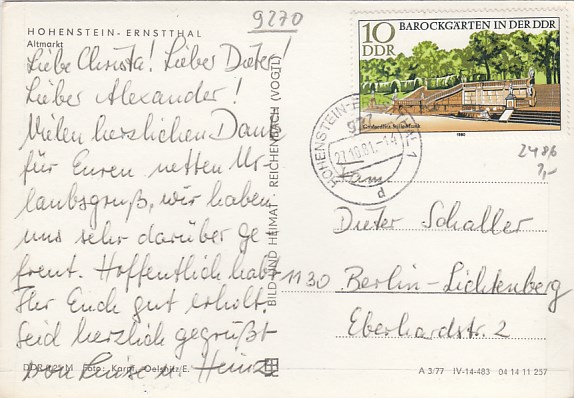 9270
HOHENSTEIN-ERNSTTHAL
Altmarkt
Liebe Christa! Lieber Dieter!
Lieber Alexander!
Vielen herzlichen Dank
für Euren netten Ur-
laubsgruß, wir haben
uns sehr darüber ge
freut. Hoffentlich habt
Ihr Euch gut erholt.
Seid herzlich gegrüßt
von Luise u. Heinz
DDR 0,25 M Foto: Karpf, Oelsnitz/E.
BILD UND HEIMAT · REICHENBACH (VOGTL)
10
DDR
BAROCKGÄRTEN IN DER DDR
Großsedlitz
1980
HOHENSTEIN-ERNSTTHAL 1
927
27.10.81.-14
d
2486
?,-
Fam.
Dieter Schaller
1130 Berlin-Lichtenberg
Eberhardstr. 2
A 3/77 IV-14-483 04 14 11 257